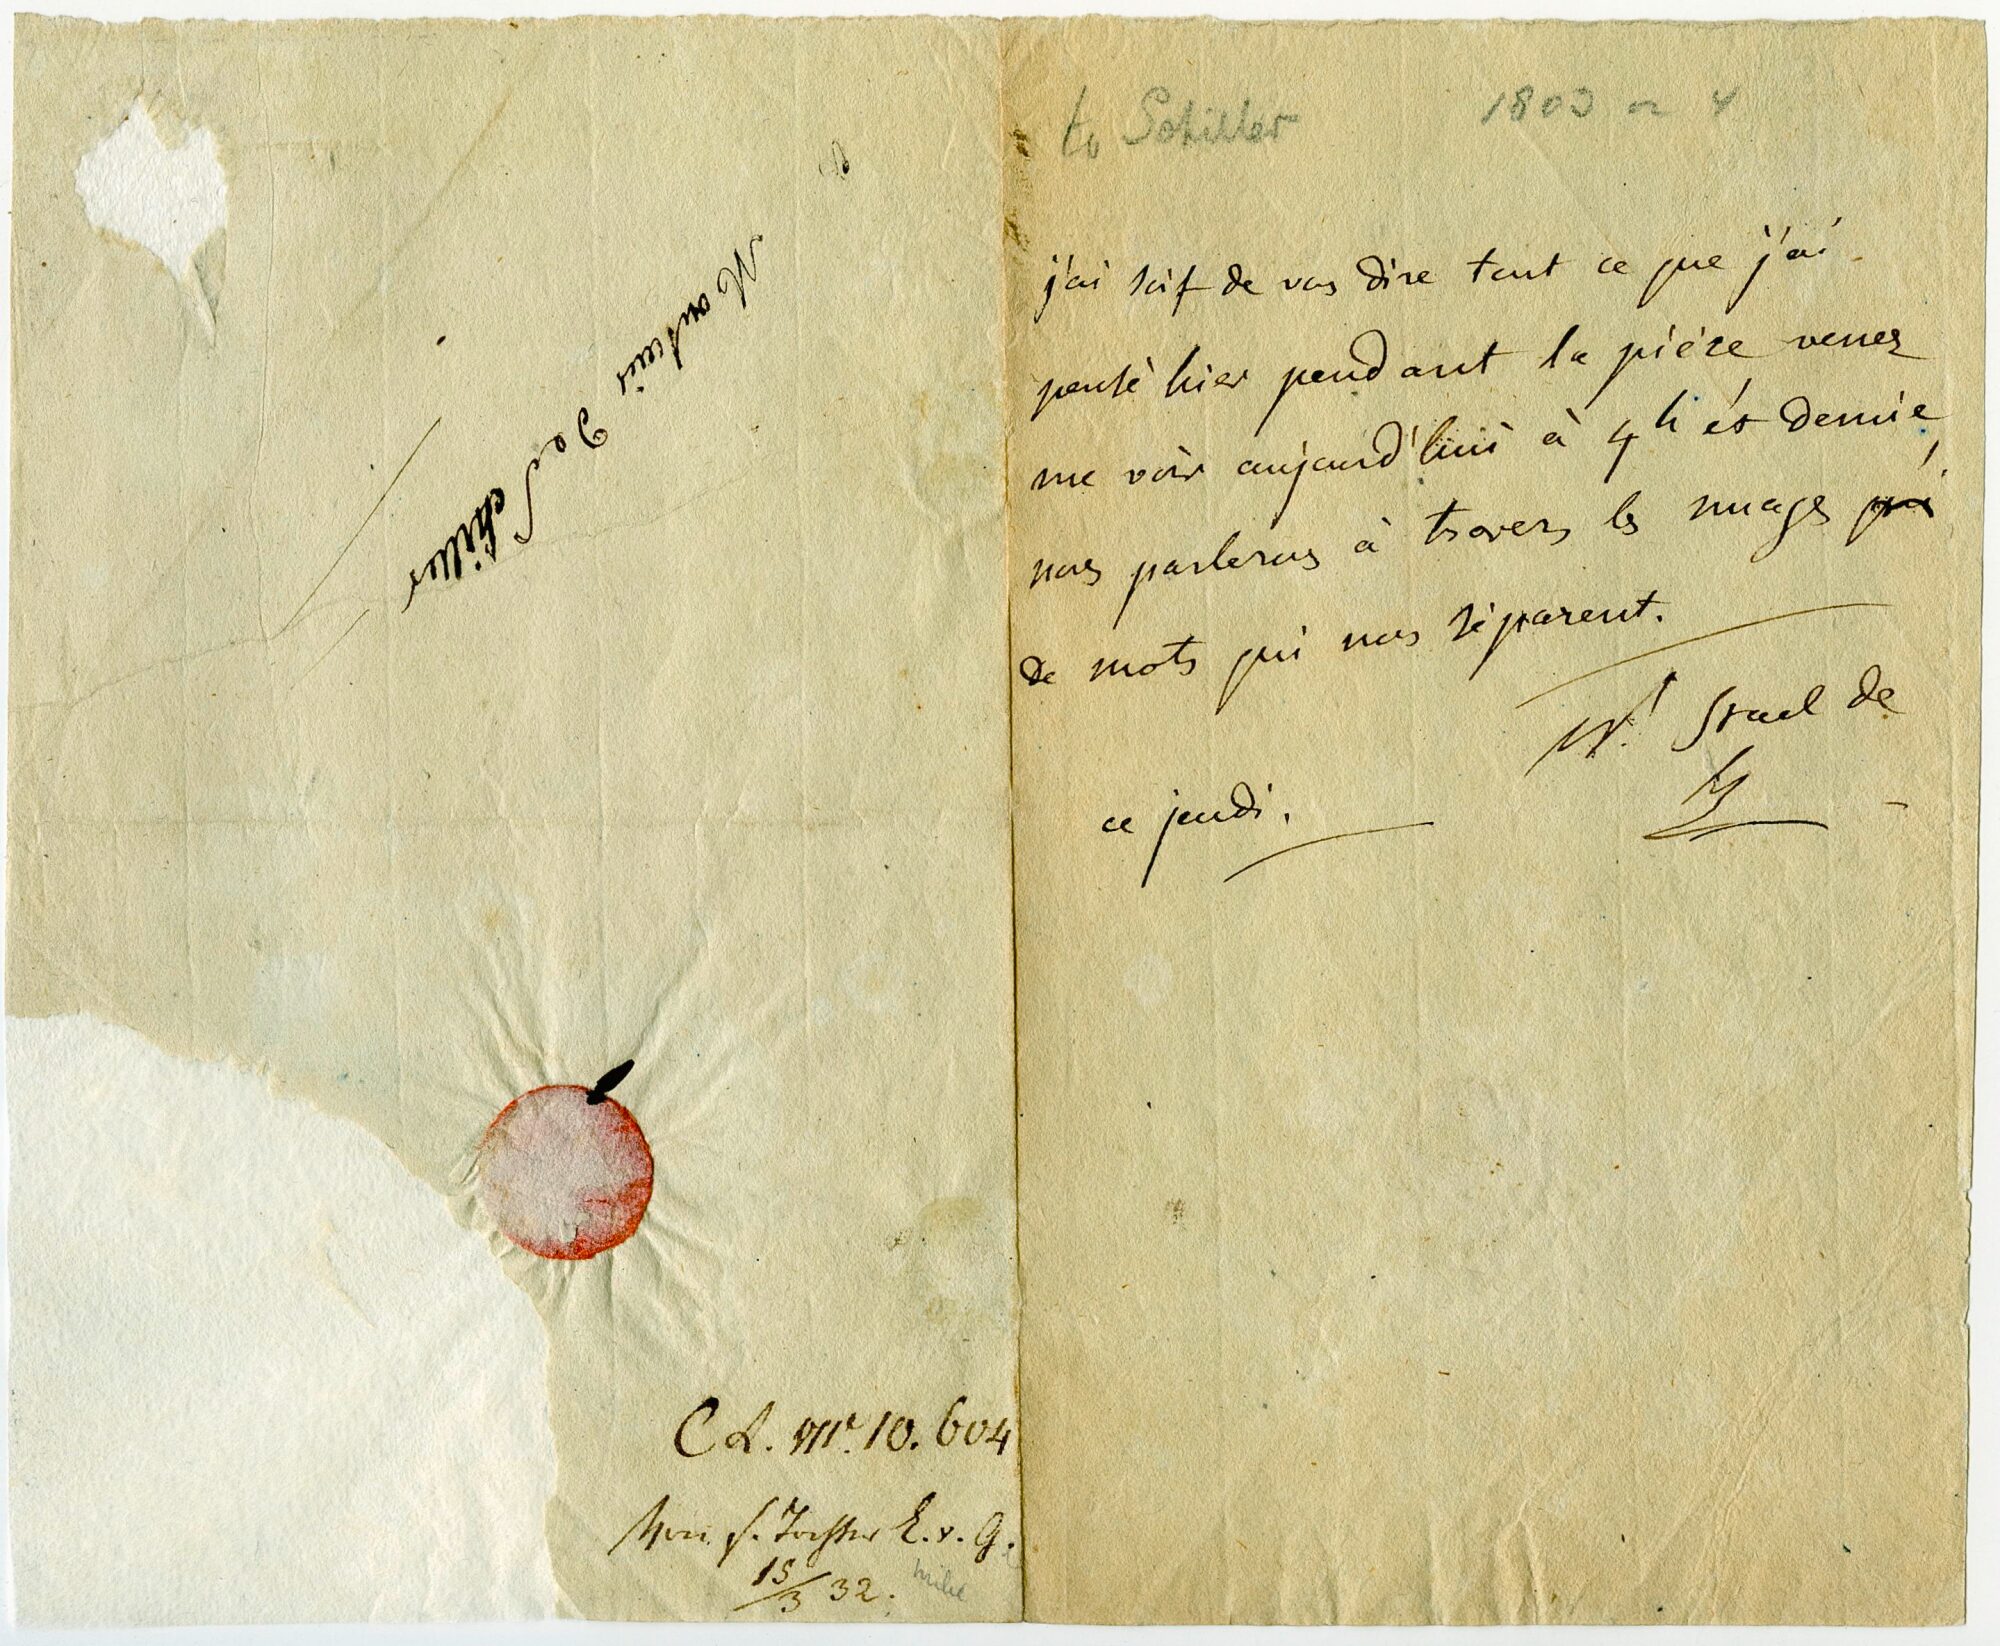 Monsieur
de Schiller
C L. Nr. 10. 604
Von s. Tochter E. v. G.
15/3 32.
to Schiller 1803 or 4
j'ai soif de vous dire tout ce que j'ai
pensé hier pendant la pièce venez
me voir aujourd'hui à 4 h et demie
nous parlerons à travers les nuages qui
de mots qui nous séparent.
N. Stael de
H
ce jeudi.